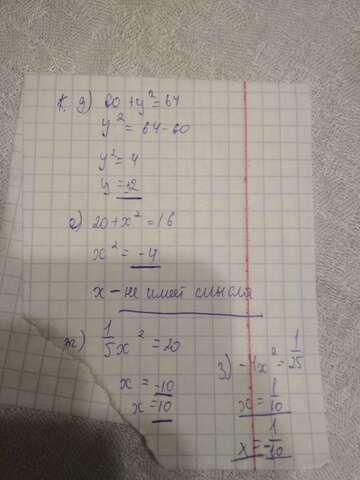 д) 60 + y² = 64
y² = 64 - 60
y² = 4
y = ±2
е) 20 + x² = 16
x² = -4
x - не имеет смысла
ж) 1/5 x² = 20
x = -10
x = 10
з) -4x² = 1/25
x = 1/10
x = -1/10